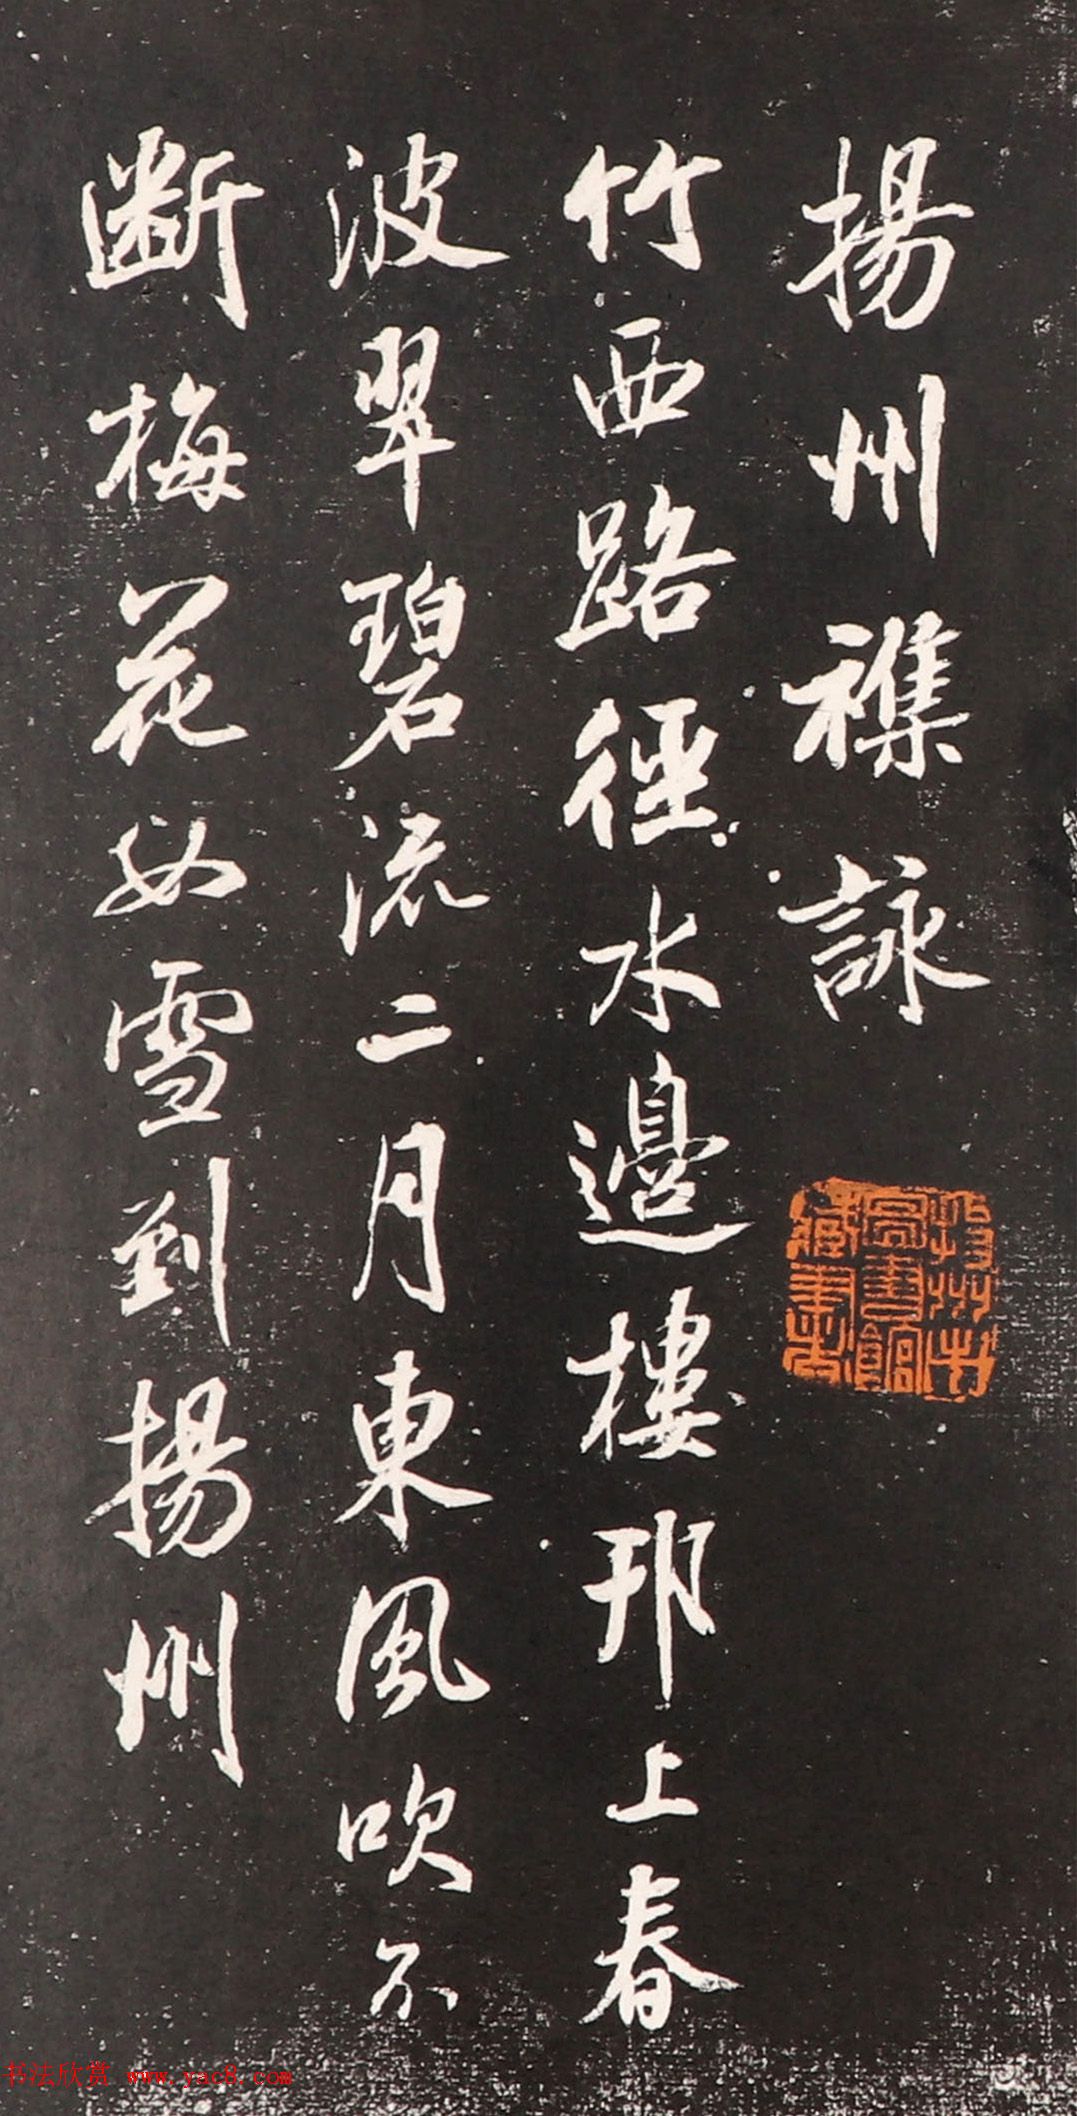 揚州襍詠
竹西路徑水邊樓邗上春
波翠碧流二月東風吹不
斷梅花如雪到揚州
书法欣赏 www.yac8.com